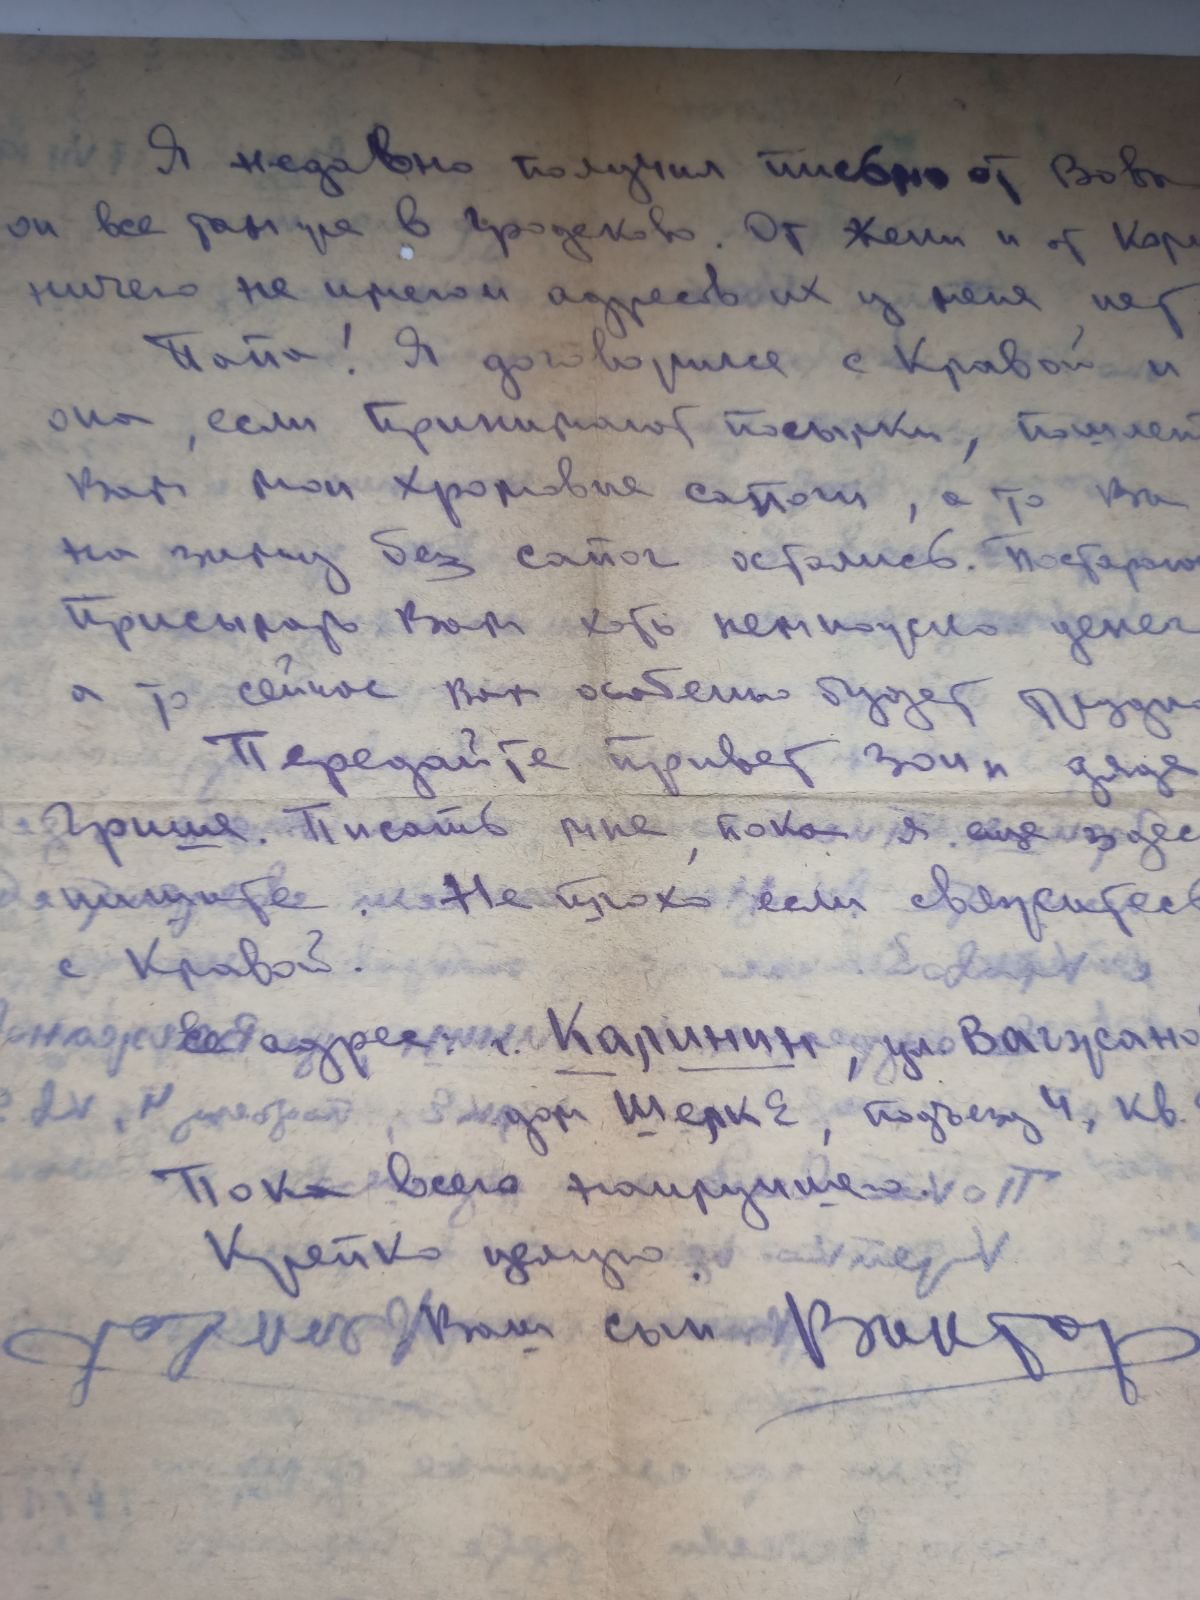 Я недавно получил письмо от Вовы
он все там же в Гродеково. От Жени и от
ничего не имею и адресов их у меня нет
Папа! Я договорился с Кравой и
она, если принимают посылки, пошлет
Вам мои хромовые сапоги, а то Вы
на зиму без сапог остались. Постараюсь
присылать Вам хоть немножко денег
а то сейчас Вам особенно будет трудно
Передайте привет Зои и дяде
Грише. Писать мне, пока я еще здесь
пишите. Неплохо если свяжетесь
с Кравой.
Ее адрес: г. Калинин, ул Вагжано
дом Шерк Е, подъезд 4, кв.
Пока всего наилучшего.
Крепко целую.
Ваш сын Виктор